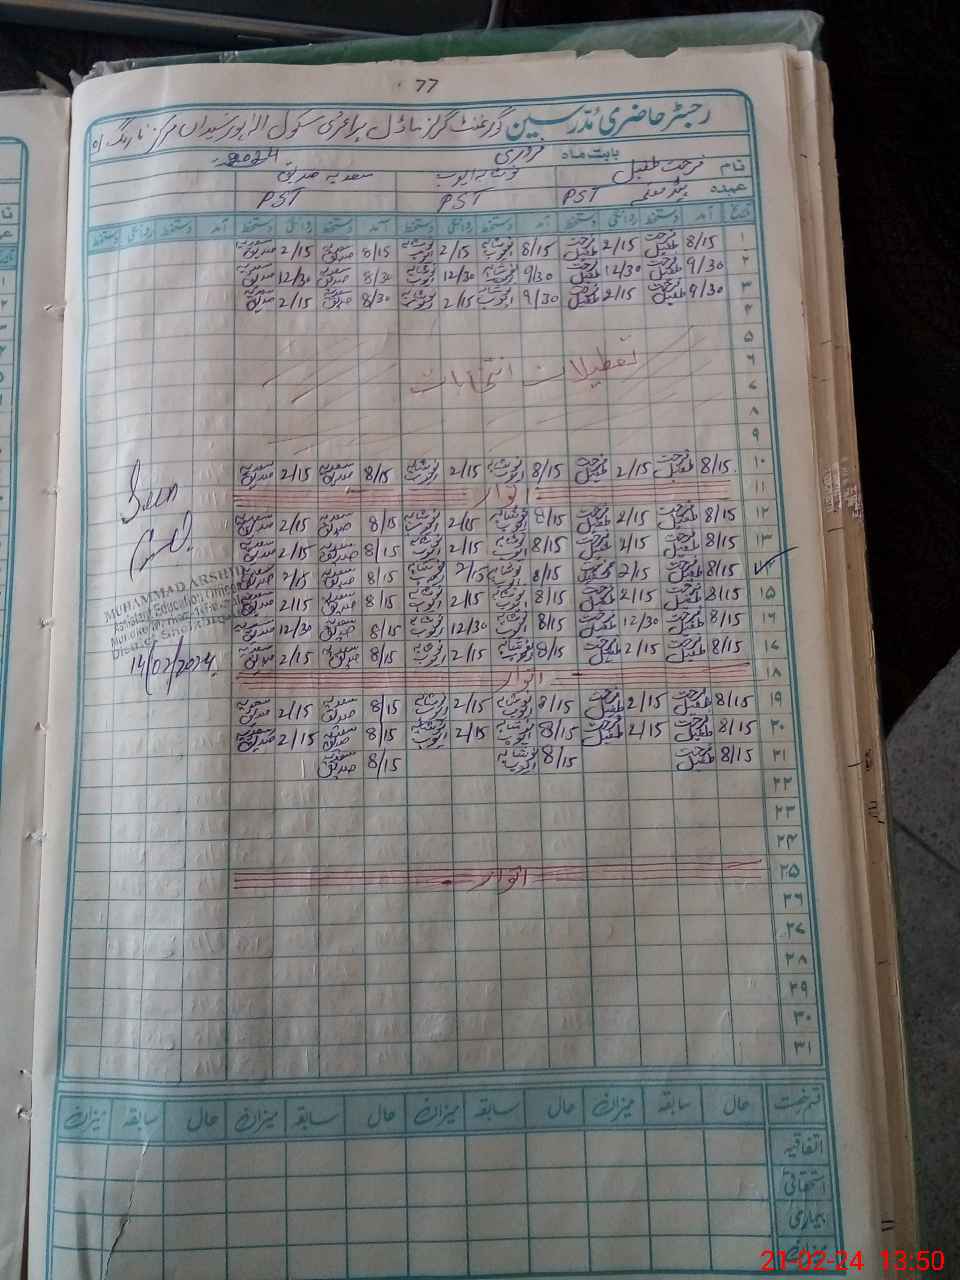 77
رجسٹر حاضری مدرسین گورنمنٹ گرلز ماڈل پرائمری سکول
بابت ماہ فروری 2024
نام فرحت طفیل نوشابہ ایوب سعدیہ صدیق
عہدہ ہیڈ معلمہ PST PST PST
تاریخ آمد دستخط روانگی دستخط آمد دستخط روانگی دستخط آمد دستخط روانگی دستخط آمد دستخط روانگی دستخط
۱ 8/15 فرحت طفیل 2/15 فرحت طفیل 8/15 نوشابہ ایوب 2/15 نوشابہ ایوب 8/15 سعدیہ صدیق 2/15 سعدیہ صدیق
۲ 9/30 فرحت طفیل 12/30 فرحت طفیل 9/30 نوشابہ ایوب 12/30 نوشابہ ایوب 8/30 سعدیہ صدیق 12/30 سعدیہ صدیق
۳ 9/30 فرحت طفیل 2/15 فرحت طفیل 9/30 نوشابہ ایوب 2/15 نوشابہ ایوب 8/30 سعدیہ صدیق 2/15 سعدیہ صدیق
۴
۵
۶ تعطیلات انتخابات
۷
۸
۹
۱۰ 8/15 فرحت طفیل 2/15 فرحت طفیل 8/15 نوشابہ ایوب 2/15 نوشابہ ایوب 8/15 سعدیہ صدیق 2/15 سعدیہ صدیق
۱۱ اتوار
Seen
۱۲ 8/15 فرحت طفیل 2/15 فرحت طفیل 8/15 نوشابہ ایوب 2/15 نوشابہ ایوب 8/15 سعدیہ صدیق 2/15 سعدیہ صدیق
۱۳ 8/15 فرحت طفیل 2/15 فرحت طفیل 8/15 نوشابہ ایوب 2/15 نوشابہ ایوب 8/15 سعدیہ صدیق 2/15 سعدیہ صدیق
8/15 فرحت طفیل 2/15 فرحت طفیل 8/15 نوشابہ ایوب 2/15 نوشابہ ایوب 8/15 سعدیہ صدیق 2/15 سعدیہ صدیق
۱۵ 8/15 فرحت طفیل 2/15 فرحت طفیل 8/15 نوشابہ ایوب 2/15 نوشابہ ایوب 8/15 سعدیہ صدیق 2/15 سعدیہ صدیق
۱۶ 8/15 فرحت طفیل 12/30 فرحت طفیل 8/15 نوشابہ ایوب 12/30 نوشابہ ایوب 8/15 سعدیہ صدیق 12/30 سعدیہ صدیق
۱۷ 8/15 فرحت طفیل 2/15 فرحت طفیل 8/15 نوشابہ ایوب 2/15 نوشابہ ایوب 8/15 سعدیہ صدیق 2/15 سعدیہ صدیق
MUHAMMAD ARSHID
Assistant Education Officer
14/02/2024
۱۸ اتوار
۱۹ 8/15 فرحت طفیل 2/15 فرحت طفیل 8/15 نوشابہ ایوب 2/15 نوشابہ ایوب 8/15 سعدیہ صدیق 2/15 سعدیہ صدیق
۲۰ 8/15 فرحت طفیل 2/15 فرحت طفیل 8/15 نوشابہ ایوب 2/15 نوشابہ ایوب 8/15 سعدیہ صدیق 2/15 سعدیہ صدیق
۲۱ 8/15 فرحت طفیل 8/15 نوشابہ ایوب 8/15 سعدیہ صدیق
۲۲
۲۳
۲۴
۲۵ اتوار
۲۶
۲۷
۲۸
۲۹
۳۰
۳۱
قسم رخصت حال سابقہ میزان حال سابقہ میزان حال سابقہ میزان حال سابقہ میزان
اتفاقیہ
استحقاقی
بیماری
میزان
21-02-24 13:50